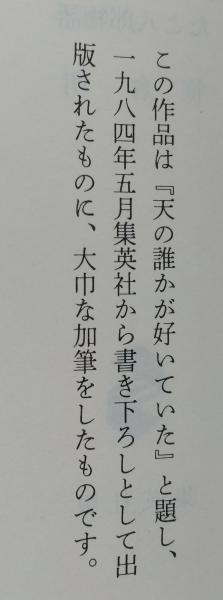 この作品は『天の誰かが好いていた』と題し、
一九八四年五月集英社から書き下ろしとして出
版されたものに、大巾な加筆をしたものです。